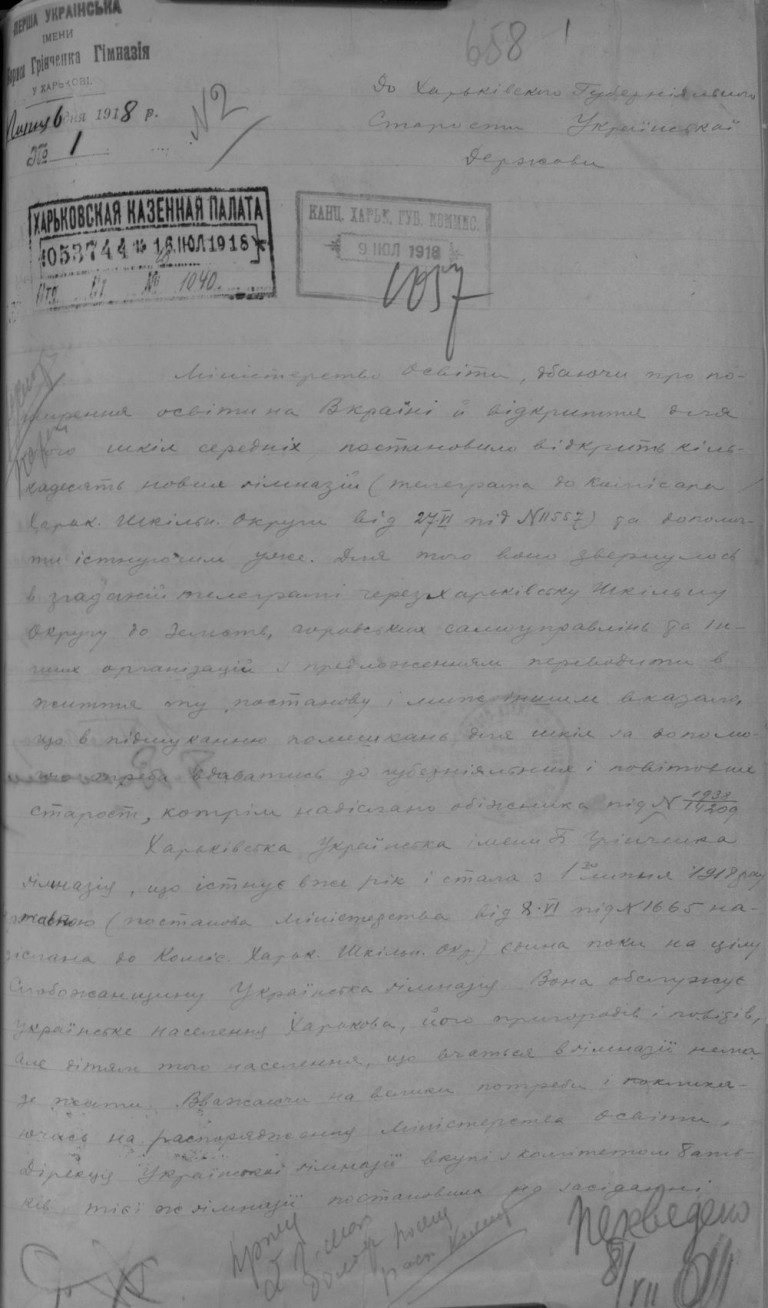 ПЕРША УКРАЇНСЬКА
ІМЕНИ
Бориса Грінченка Гімназія
У ХАРЬКОВІ.
Липня 6 дня 1918 р.
№ 1
N2
658
До Харьківского Губерніяльного
Старости Української
Держави
ХАРЬКОВСКАЯ КАЗЕННАЯ ПАЛАТА
053744 * 16 ІЮЛ 1918
Отд. Ст. № 1040
КАНЦ. ХАРЬК. ГУБ. КОММИС.
9 ІЮЛ 1918
1057
Міністерство Освіти, дбаючи про по-
ширення освіти на Вкраїні й відкриття для
того шкіл середніх, постановило відкрить кіль-
кадесять нових гімназій (телеграма до Комісара
Харьк. Шкільн. Округи від 27.VI під N 11557) та допомог-
ти істнуючим уже. Для того воно звернулось
в згаданій телеграмі через Харьківську Шкільну
Округу до Земств, городських самоуправлінь та ін-
чих організацій з предложенням переводити в
життя ту постанову і
що в підшуканню помешкань для шкіл за допомо-
гою треба вдаватись до губерніяльних і повітових
старост, котрім надіслано обіжника під N 1931/1209
Харьківська Українська імени Б. Грінченка
гімназія, що істнує вже рік і стала з 1го липня 1918 року
державною (постанова Міністерства від 8.VI під N 1665 на-
діслана до Коміс. Харьк. Шкільн. Окр.) єдина поки на цілу
Слобожанщину Українська гімназія. Вона обслужує
українське населення Харькова, його пригородів і повітів,
але дітям того населення, що вчаться в гімназії нема
де жити. Вважаючи на велики потреби і поклика-
ючись на распорядження Міністерства Освіти,
Дірекція Української гімназії вкупі з комітетом бать-
ків тієї ж гімназії постановила на засіданні
Переведено
8/VII